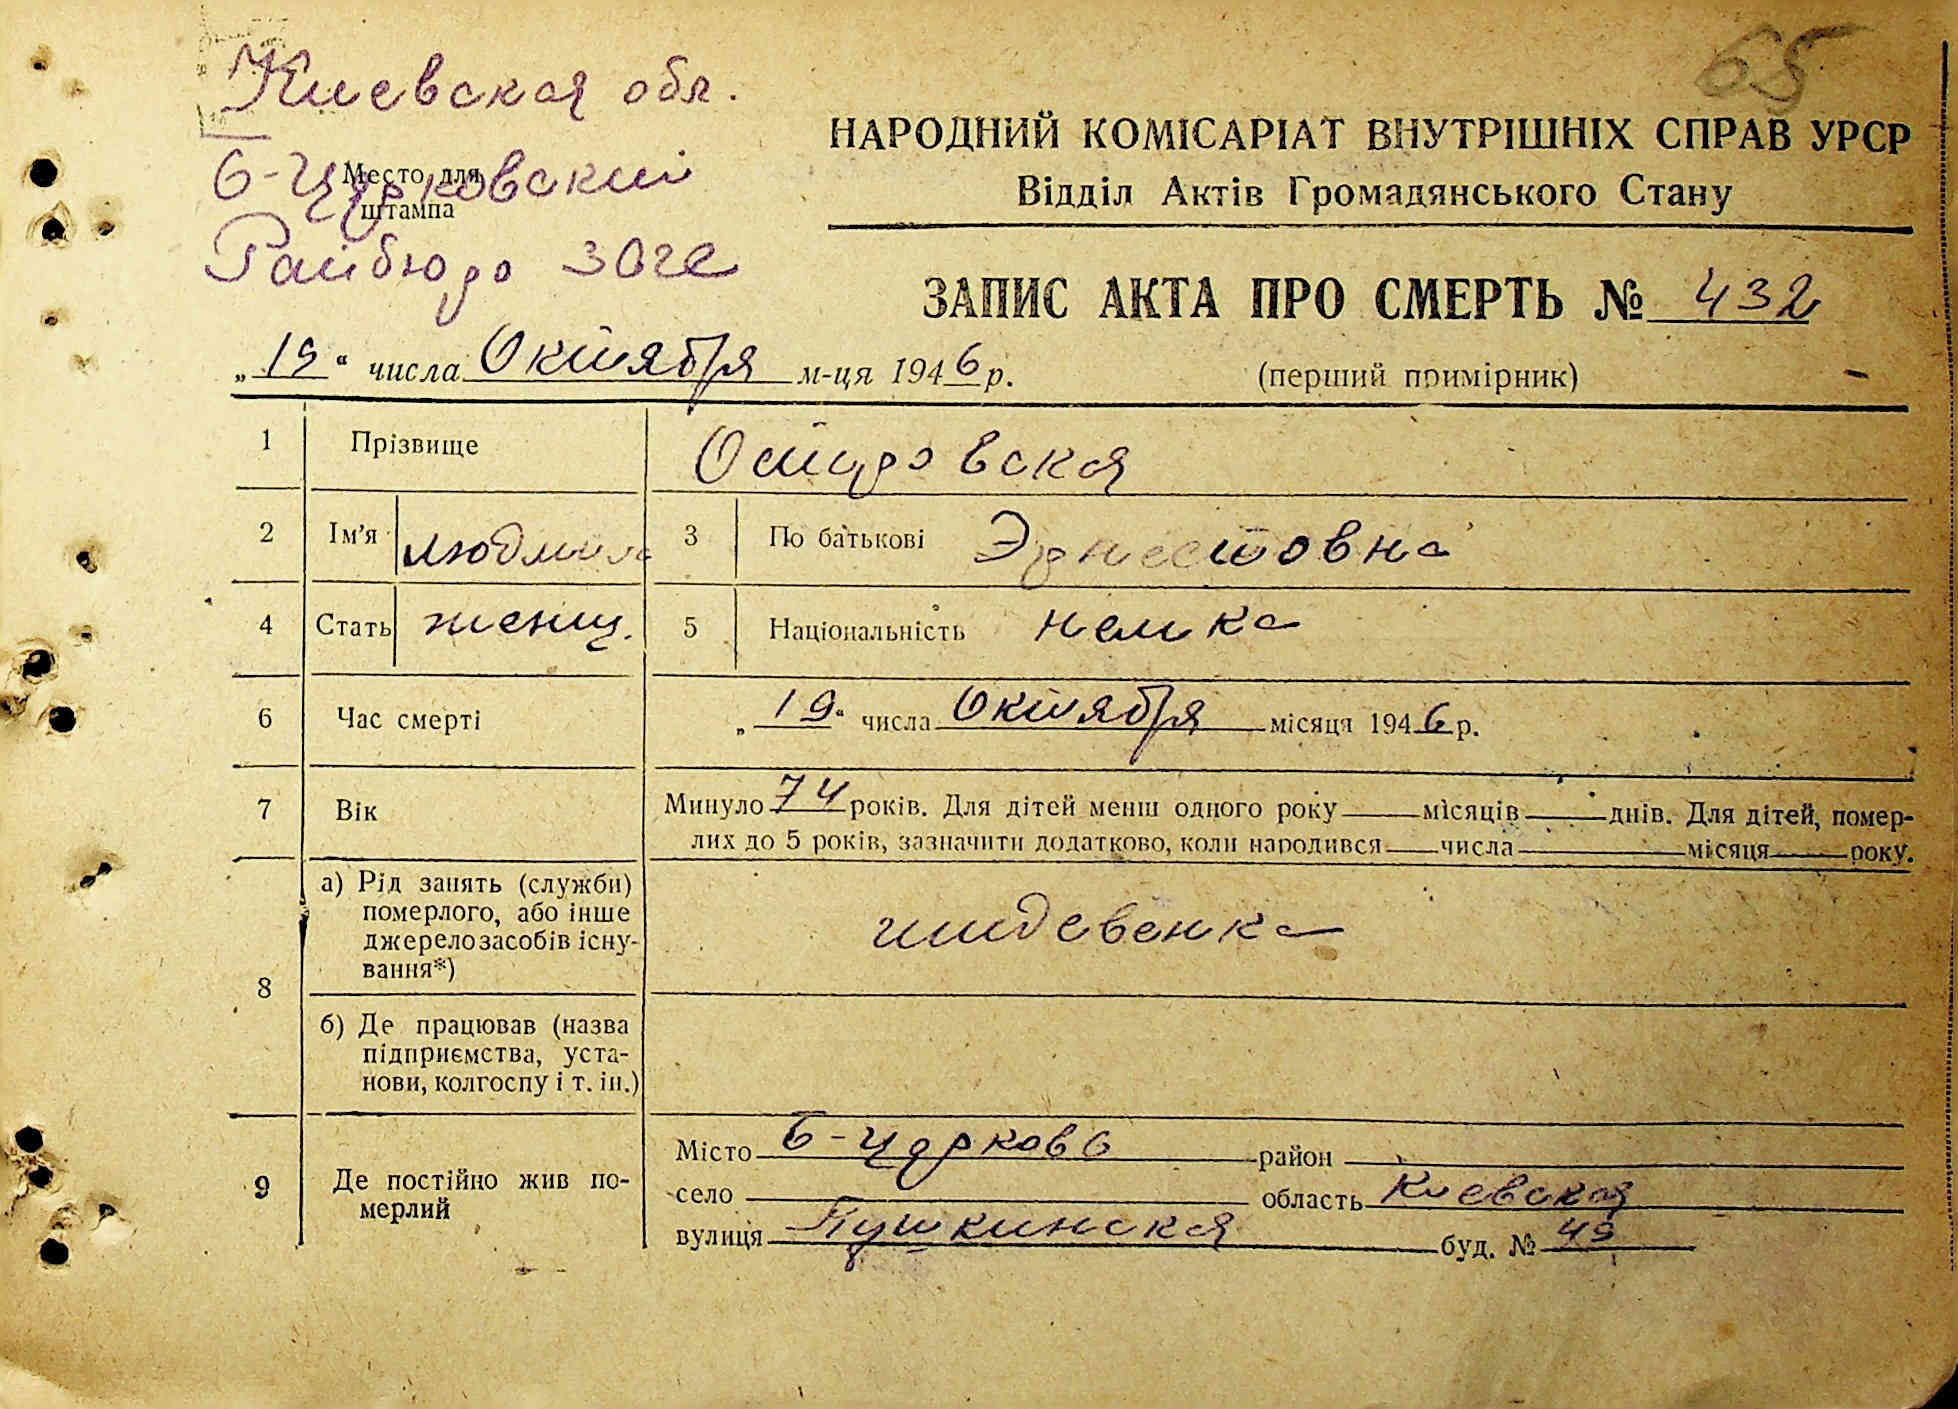 65
Киевская обл.
Место для
штампа
Б-Церковский
Райбюро ЗАГС
НАРОДНИЙ КОМІСАРІАТ ВНУТРІШНІХ СПРАВ УРСР
Відділ Актів Громадянського Стану
ЗАПИС АКТА ПРО СМЕРТЬ № 432
„19“ числа Октября м-ця 1946 р.
(перший примірник)
1 Прізвище Островская
2 Ім’я Людмила 3 По батькові Эрнестовна
4 Стать женщ. 5 Національність немка
6 Час смерті „19“ числа Октября місяця 1946 р.
7 Вік Минуло 74 років. Для дітей менш одного року місяців днів. Для дітей, помер-
лих до 5 років, зазначити додатково, коли народився числа місяця року.
8
а) Рід занять (служби)
померлого, або інше
джерело засобів існу-
вання*)
иждевенка
б) Де працював (назва
підприємства, уста-
нови, колгоспу і т. ін.)
9 Де постійно жив по-
мерлий
Місто Б-Церковь район
село область Киевская
вулиця Пушкинская буд. № 49